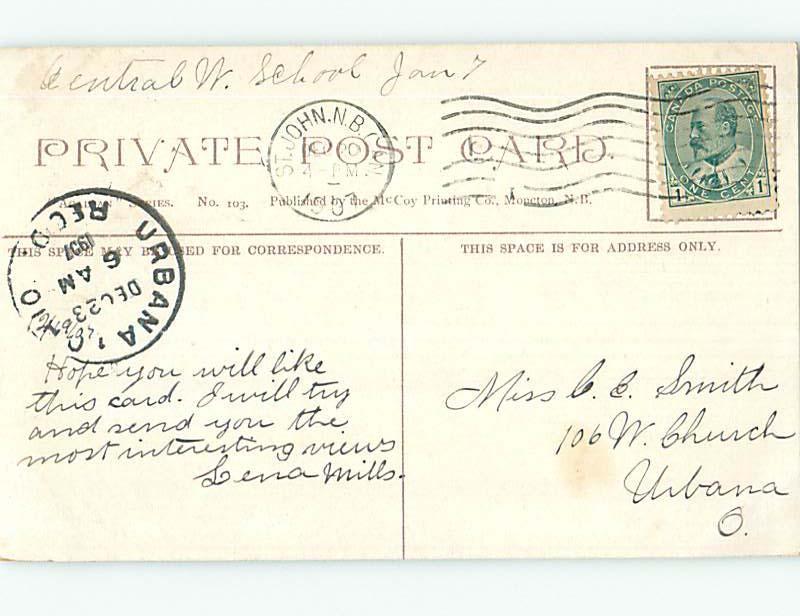 Central W. School Jan 7
PRIVATE POST CARD.
ST. JOHN. N.B.
4 - PM
07
CANADA POSTAGE
1 ONE CENT 1
SERIES. No. 103. Published by the McCoy Printing Co., Moncton, N.B.
THIS SPACE MAY BE USED FOR CORRESPONDENCE.
THIS SPACE IS FOR ADDRESS ONLY.
URBANA, OHIO
REC'D
1907
6 AM
DEC 23
Hope you will like
this card. I will try
and send you the
most interesting views
Lena Mills.
Miss C. E. Smith
106 W. Church
Urbana
O.